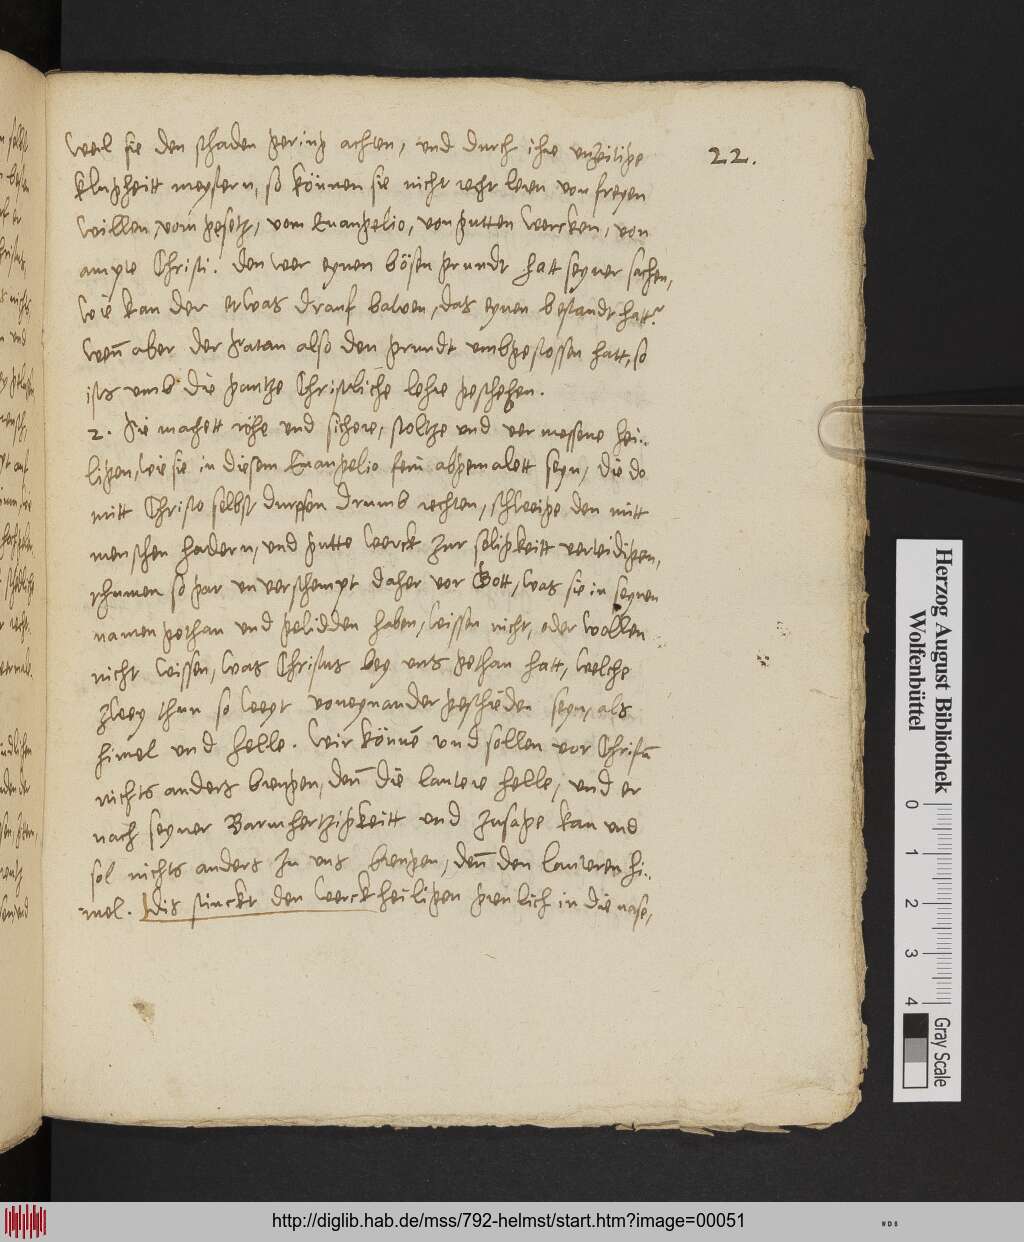 22.
weil sie den schaden gering achten, und durch ihre unzeitige
klugheitt meystern, so können sie nicht recht leren von freyen
willen, vom gesetz, vom Euangelio, von gutten wercken, von
ampte Christi. Den wer eynen bösen grundt hatt seyner sachen,
wie kan der etwas drauf bawen, das eynen bestandt hatt?
wen̄ aber der Satan also den grundt umbgestossen hatt, so
ists umb die gantze Christliche lehre geschehen.
2. Sie machett rohe und sichere, stoltze und vermessene hei⸗
ligen, wie sie in diesem Euangelio fein abgemalett seyn, die do
mitt Christo selbst durffen drumb rechten, schweige den mitt
menschen hadern, und gutte werck zur seligkeitt verteidigen,
rhumen so gar unverschempt daher vor Gott, was sie in seynen
namen gethan und gelidden haben, wissen nicht, oder wollen
nicht wissen, was Christus bey uns gethan hatt, welche
zwey thun so weyt voneynander geschieden seyn, als
himel und helle. Wir könnē und sollen vor Christū
nichts anders brengen, den̄ die lautere helle, und er
nach seyner Barmhertzigkeitt und zusage kan und
sol nichts anders zu uns brengen, den̄ den lauteren hi⸗
mel. Dis stinckt den werckheiligen grewlich in die nase,
Herzog August Bibliothek
Wolfenbüttel
0 1 2 3 4
Gray Scale
http://diglib.hab.de/mss/792-helmst/start.htm?image=00051